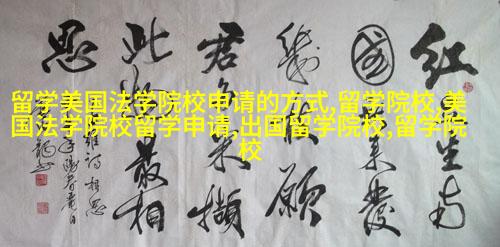 留学美国法学院校申请的方式,留学院校,美
国法学院校留学申请,出国留学院校,留学院
校
红生南
國来發
幾願
君采擷
此最相
思